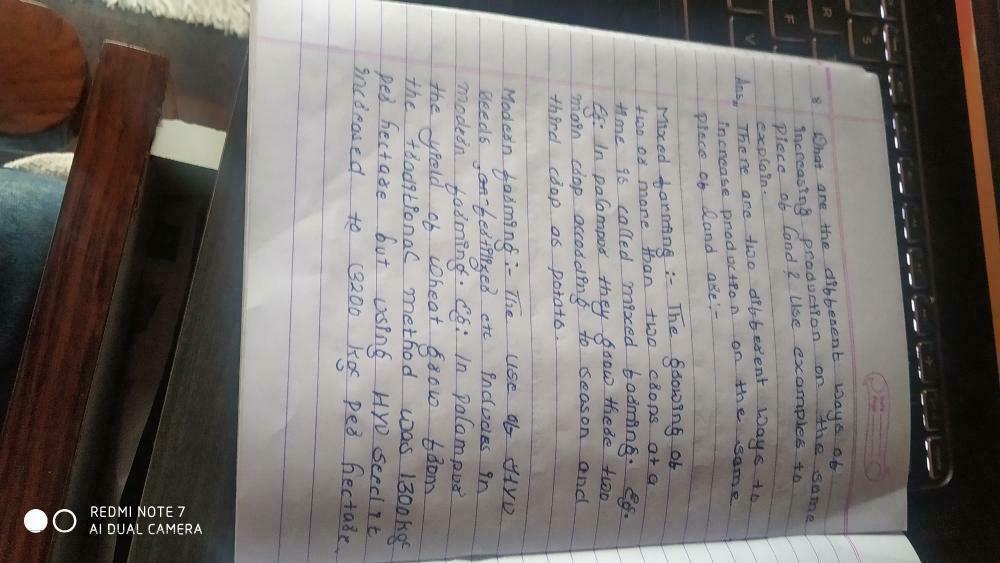 8. What are the different ways of
increasing production on the same
piece of land? Use examples to
explain.
Ans,, There are two different ways to
increase production on the same
piece of land are:-
Mixed farming :- The growing of
two or more than two crops at a
time is called mixed farming. Eg:
In palampur they grow these two
main crop according to season and
third crop as potato.
Modern farming:- The use of HYV
seeds fertilized etc includes in
modern farming. Eg: In palampur
the yield of wheat grow from
the traditional method was 1300kg
per hectare but using HYV seed it
increased to (3200 kg per hectare.
REDMI NOTE 7
AI DUAL CAMERA